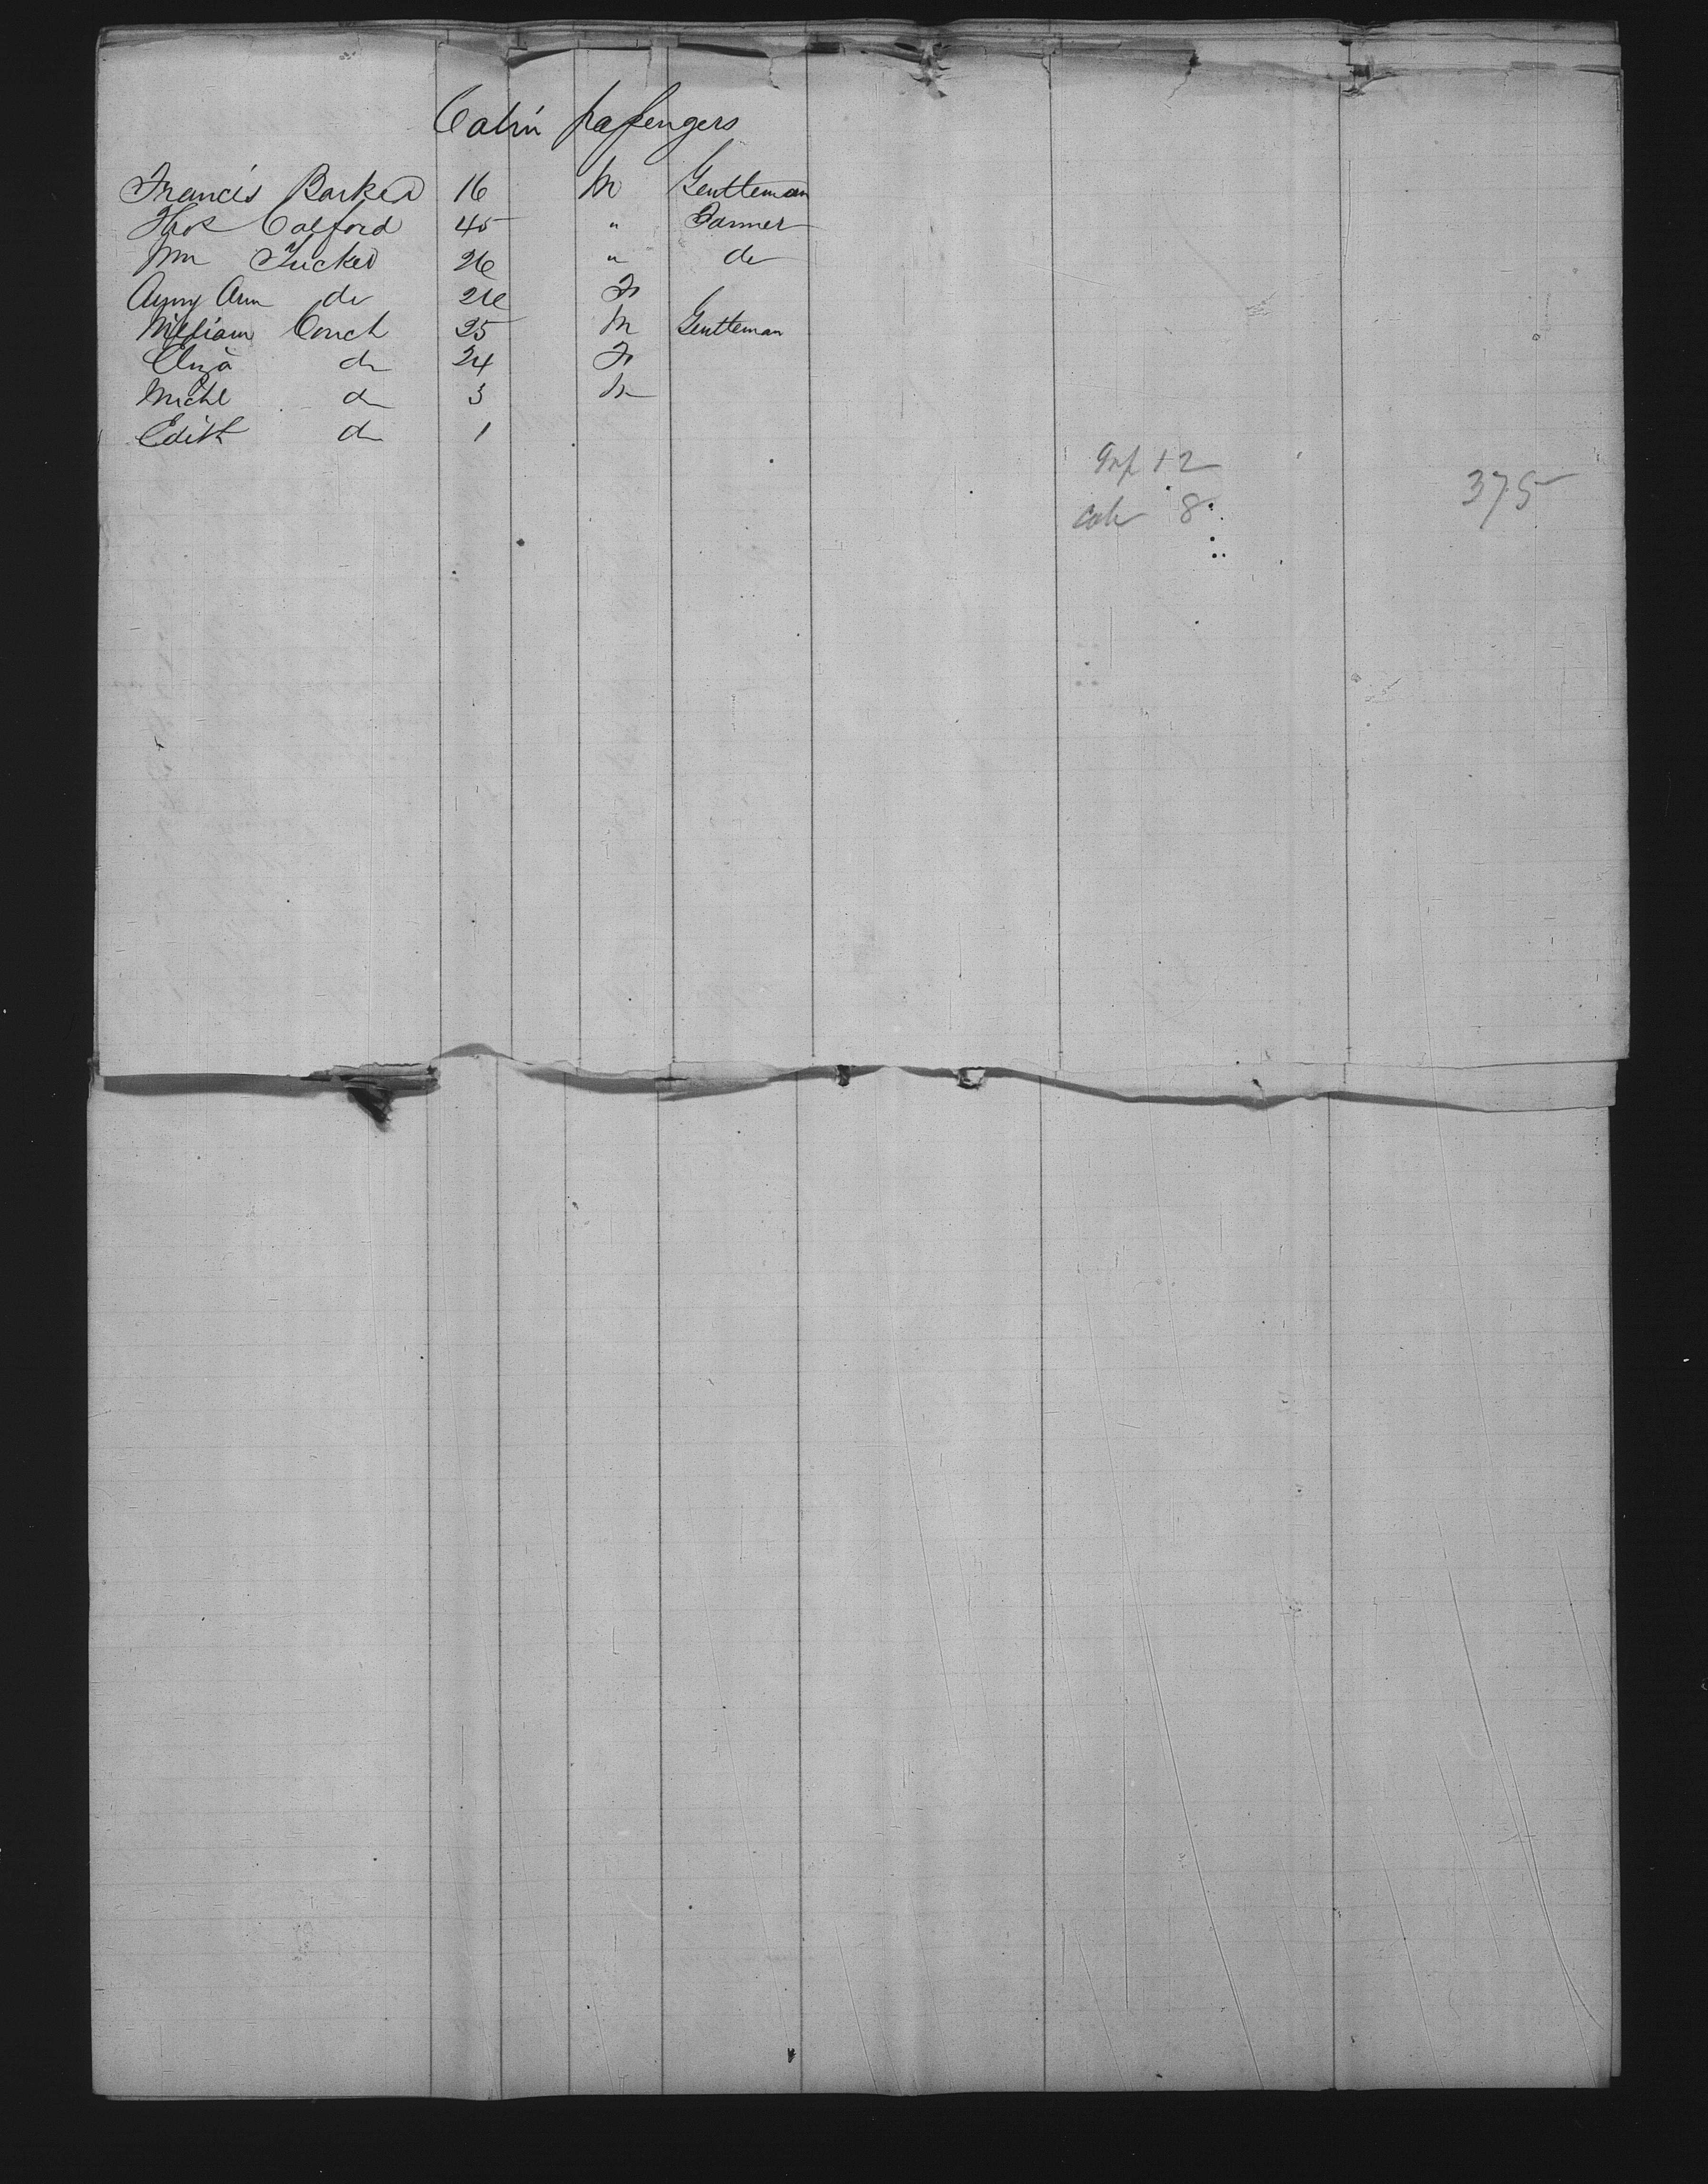 Cabin passengers
Francis Barker 16 M Gentleman
Thos Calford 45 " Farmer
Wm Tucker 26 " do
Amy Ann do 26 F
William Couch 25 M Gentleman
Eliza do 24 F
Michl do 3 M
Edith do 1
Inf 12
Cab 8
375